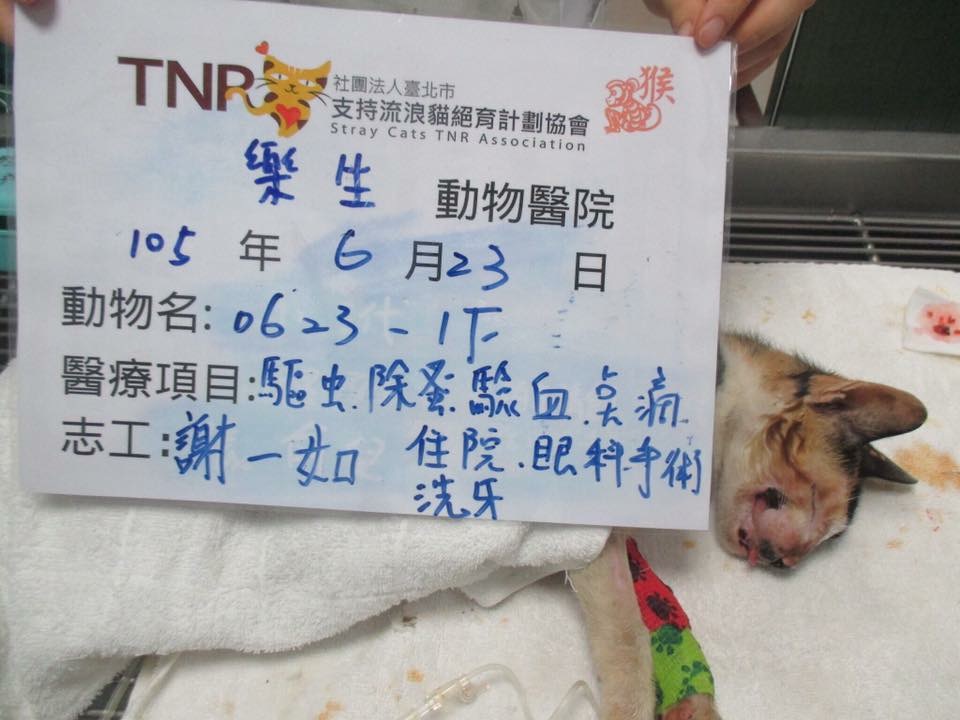 TNR
社團法人臺北市
支持流浪貓絕育計劃協會
Stray Cats TNR Association
猴
樂生 動物醫院
105 年 6 月 23 日
動物名: 0623-1下
醫療項目: 驅虫.除蚤.驗血.灵滴.
住院.眼科手術
洗牙
志工: 謝一如